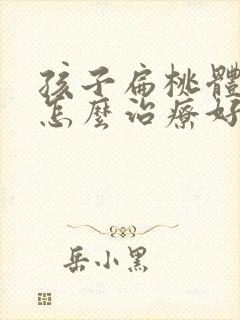 孩子扁桃體
怎麼治療好
岳小黑